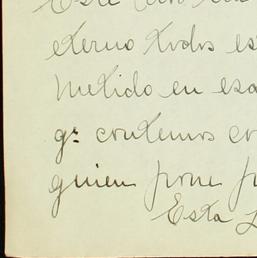 Este
eterno todos es
metido en esa
qᵉ contemos co
quien pone p
Esta L